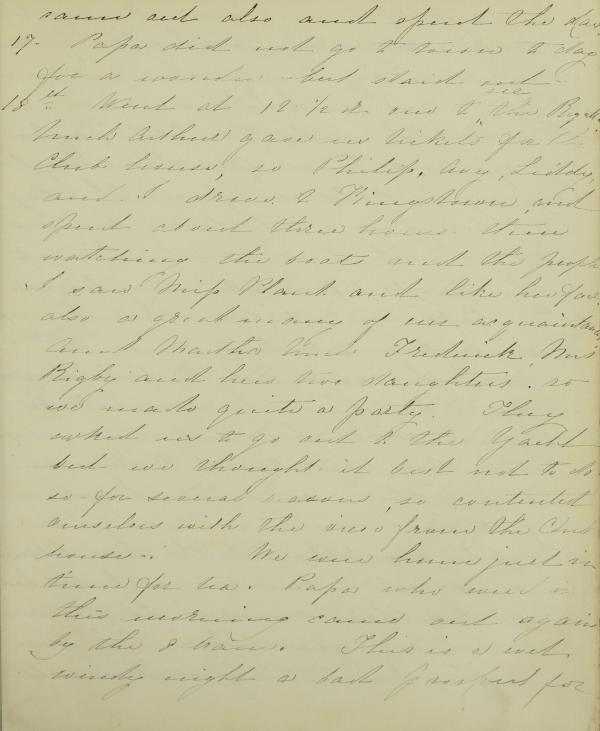 came out also and spent the day
17. Papa did not go to town to day
for a wonder but staid out
18th Went at 12 ½ o' to "the
Uncle Arthur gave us tickets for the
Club house, so Philip, Avy, Liddy,
and I drove to Kingstown and
spent about three hours there
watching the boats and the people
I saw Miss Plant and like her face
also a great many of our acquaintances
Aunt Martha Uncle Frederick Mrs
Rigby and her two daughters. so
we made quite a party. They
asked us to go out to the Yacht
but we thought it best not to do
so for several reasons, so contented
ourselves with the view from the Club
house. We came home just in
time for tea. Papa who went in
this morning came out again
by the 8 train. This is a wet
windy night a bad prospect for